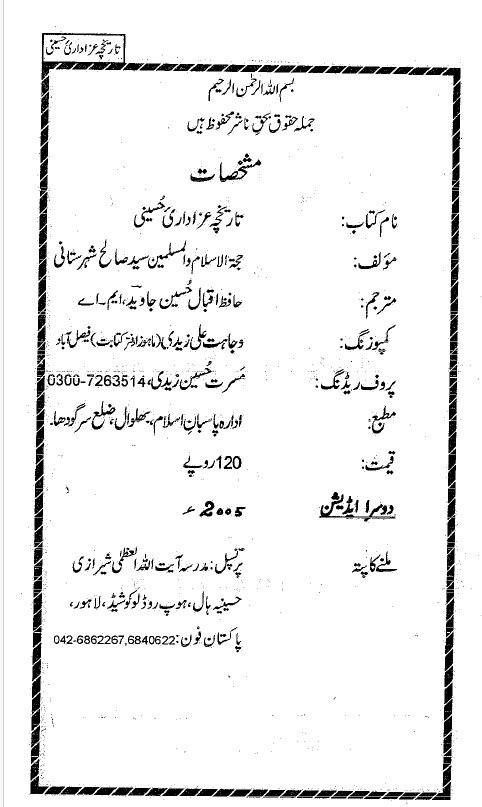 تاریخچہ عزاداریٔ حسینی
بسم اللہ الرحمٰن الرحیم
جملہ حقوق بحقِ ناشر محفوظ ہیں
مشخصات
نام کتاب: تاریخچہ عزاداریٔ حُسینی
مؤلف: حجۃ الاسلام والمسلمین سید صالح شہرستانی
مترجم: حافظ اقبال حُسین جاوید، ایم۔اے
کمپوزنگ: وجاہت علی زیدی (ماہوز دفتر کتابت) فیصل آباد
پروف ریڈنگ: مسرت حُسین زیدی، 0300-7263514
مطبع: ادارہ پاسبانِ اسلام، بھلوال، ضلع سرگودھا۔
قیمت: 120 روپے
دوسرا ایڈیشن 2005ء
ملنے کا پتہ پرنسپل: مدرسہ آیت اللہ العظمٰی شیرازی
حسینیہ ہال، ہوپ روڈ لوکوشیڈ، لاہور،
پاکستان فون: 042-6862267,6840622